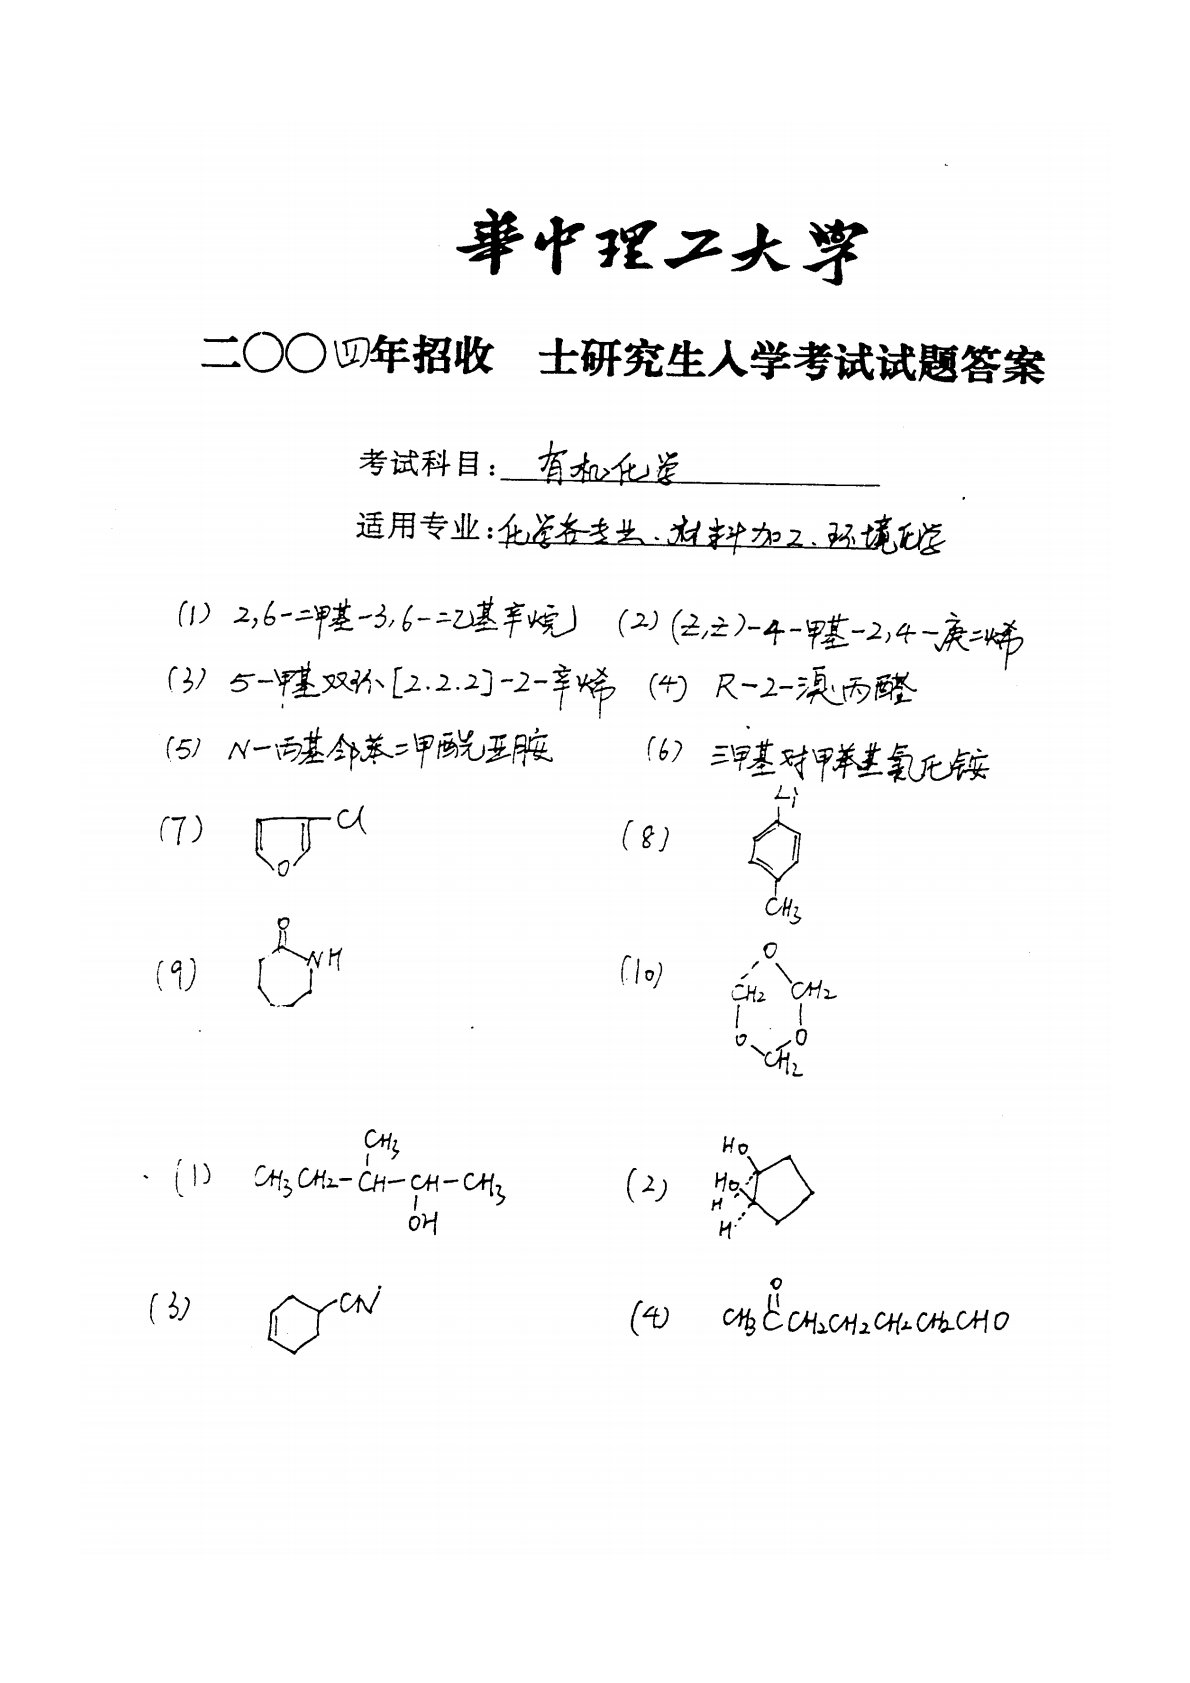 華中理工大学
二〇〇四年招收 士研究生入学考试试题答案
考试科目: 有机化学
适用专业: 化学各专业、材料加工、环境化学
(1) 2,6-二甲基-3,6-二乙基辛烷 (2) (Z,Z)-4-甲基-2,4-庚二烯
(3) 5-甲基双环[2.2.2]-2-辛烯 (4) R-2-溴丙醛
(5) N-丙基邻苯二甲酰亚胺 (6) 三甲基对甲苯基氯化铵
(7) Cl O (8) Li CH3
(9) O NH (10) O CH2 CH2 O O CH2
(1) CH3CH2-CH-CH-CH3 CH3 OH (2) HO HO H H
(3) CN (4) CH3CCH2CH2CH2CH2CHO O